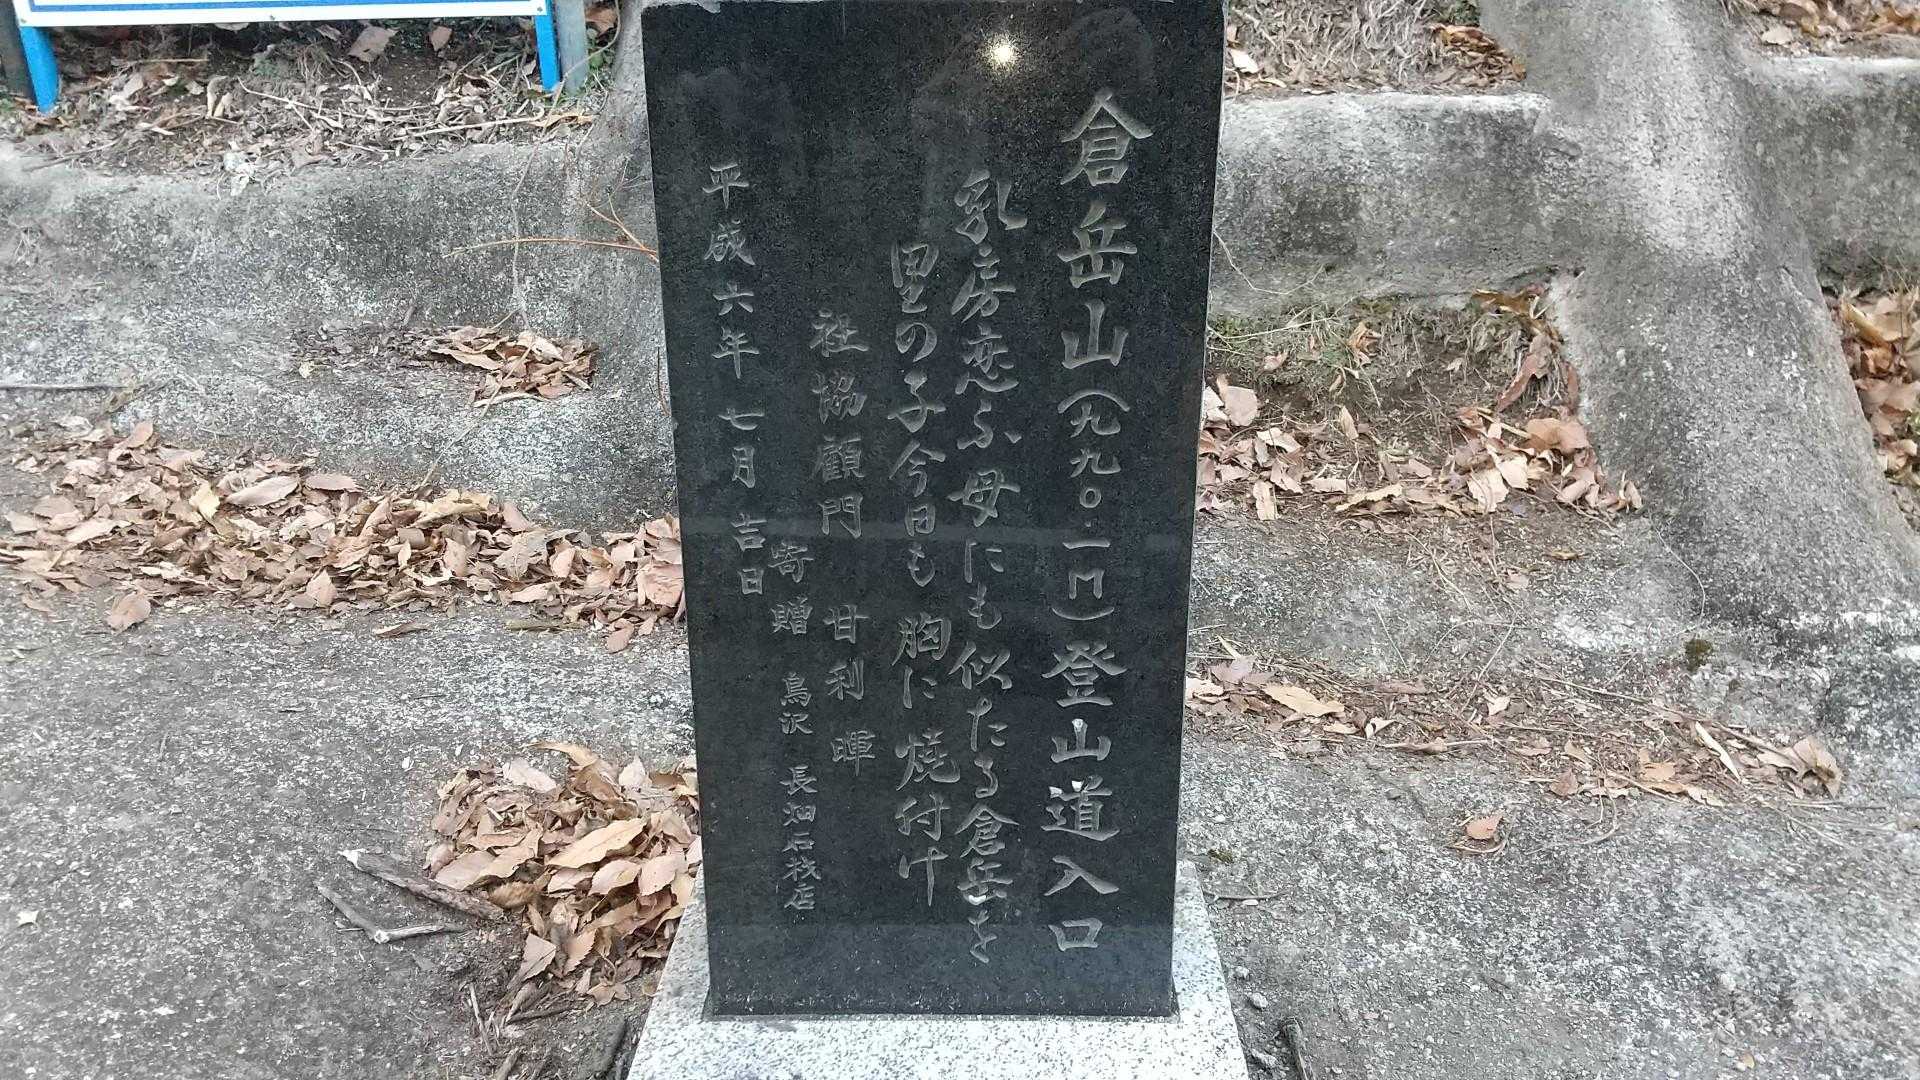 倉岳山(九九〇.一M)登山道入口
乳房恋ふ母にも似たる倉岳を
里の子今日も胸に焼付け
社協顧門 甘利暉
寄贈 鳥沢 長畑石材店
平成六年七月吉日